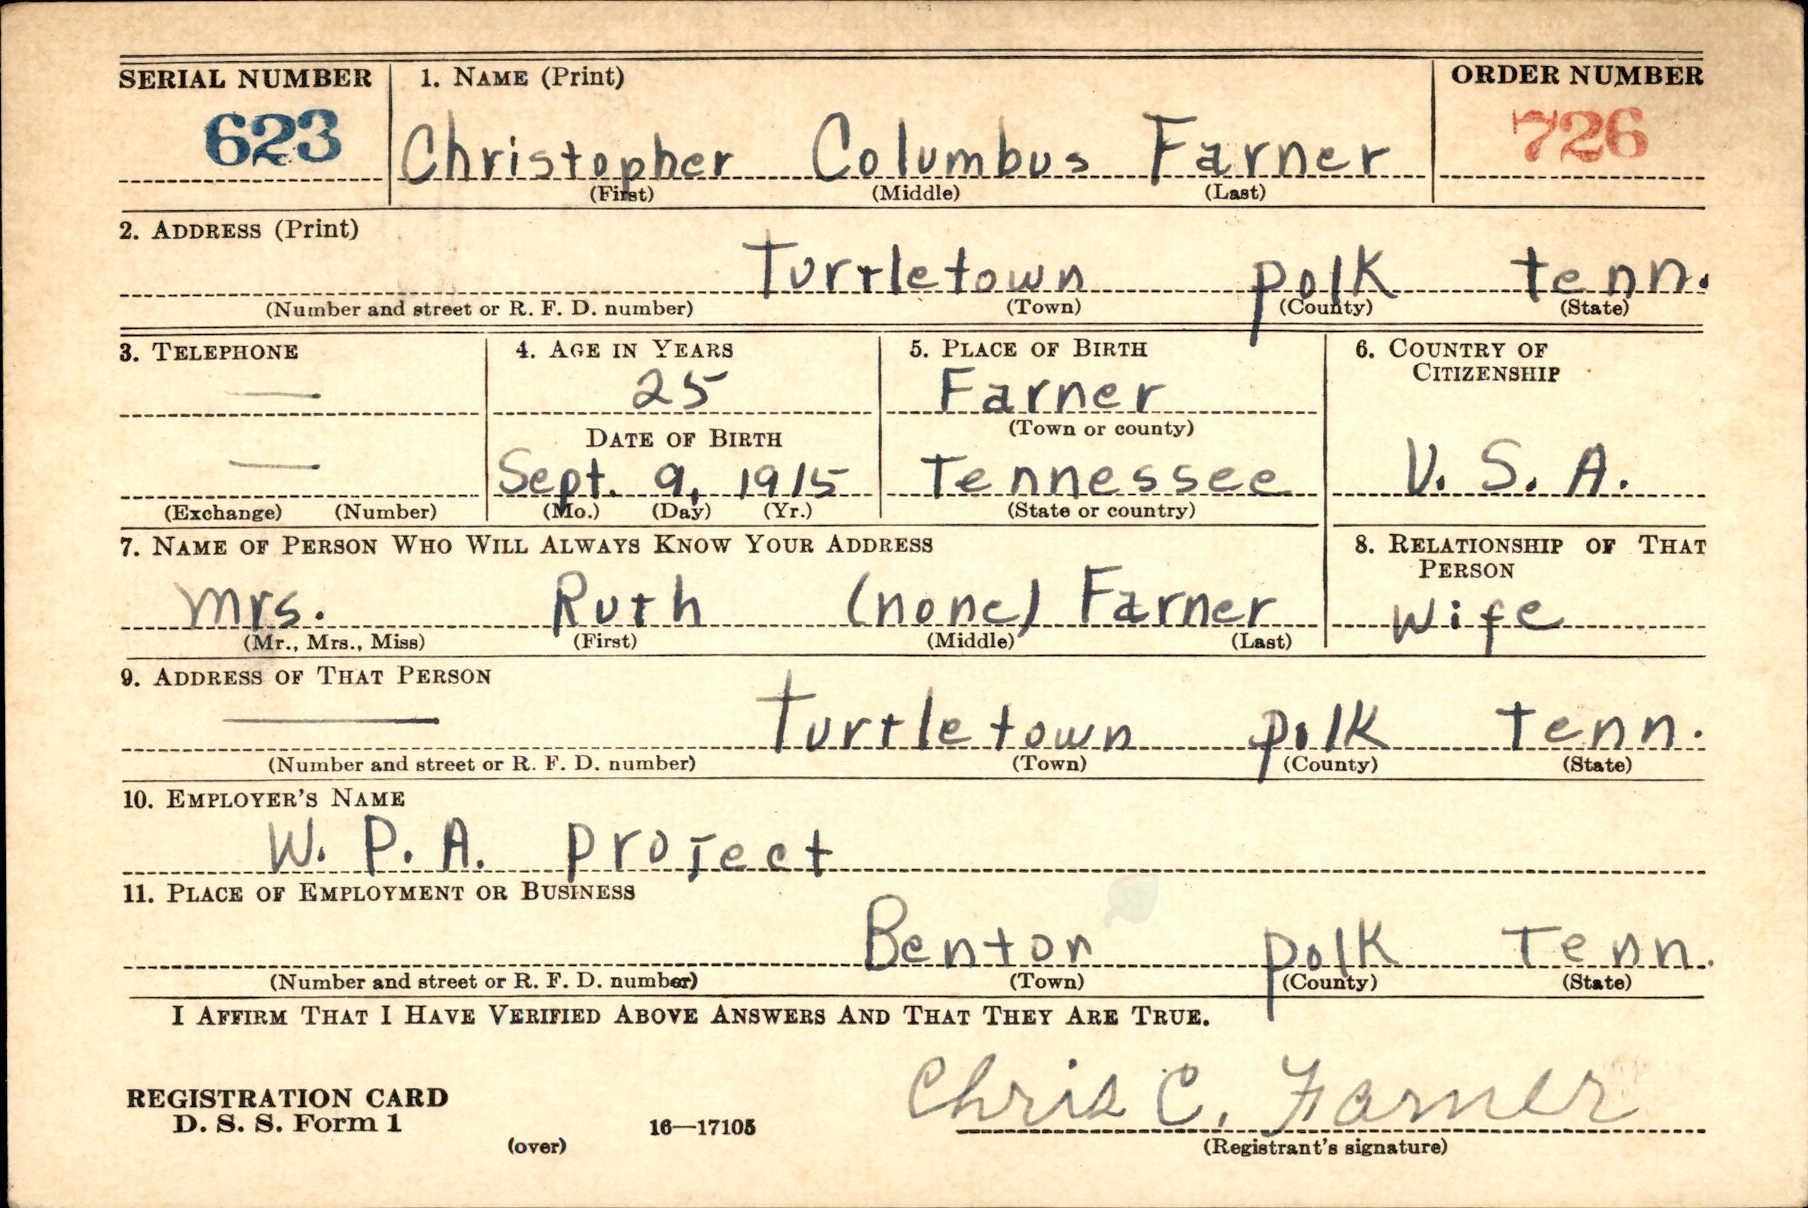 SERIAL NUMBER 1. NAME (Print) ORDER NUMBER
623 Christopher Columbus Farner 726
(First) (Middle) (Last)
2. ADDRESS (Print)
Turtletown Polk Tenn.
(Number and street or R. F. D. number) (Town) (County) (State)
3. TELEPHONE 4. AGE IN YEARS 5. PLACE OF BIRTH 6. COUNTRY OF
CITIZENSHIP
— 25 Farner
(Town or county)
DATE OF BIRTH
— Sept. 9, 1915 Tennessee U. S. A.
(Exchange) (Number) (Mo.) (Day) (Yr.) (State or country)
7. NAME OF PERSON WHO WILL ALWAYS KNOW YOUR ADDRESS 8. RELATIONSHIP OF THAT
PERSON
Mrs. Ruth (none) Farner Wife
(Mr., Mrs., Miss) (First) (Middle) (Last)
9. ADDRESS OF THAT PERSON
— Turtletown Polk Tenn.
(Number and street or R. F. D. number) (Town) (County) (State)
10. EMPLOYER'S NAME
W. P. A. Project
11. PLACE OF EMPLOYMENT OR BUSINESS
Benton Polk Tenn.
(Number and street or R. F. D. number) (Town) (County) (State)
I AFFIRM THAT I HAVE VERIFIED ABOVE ANSWERS AND THAT THEY ARE TRUE.
Chris C. Farner
REGISTRATION CARD
D. S. S. Form 1 16—17105
(over) (Registrant's signature)